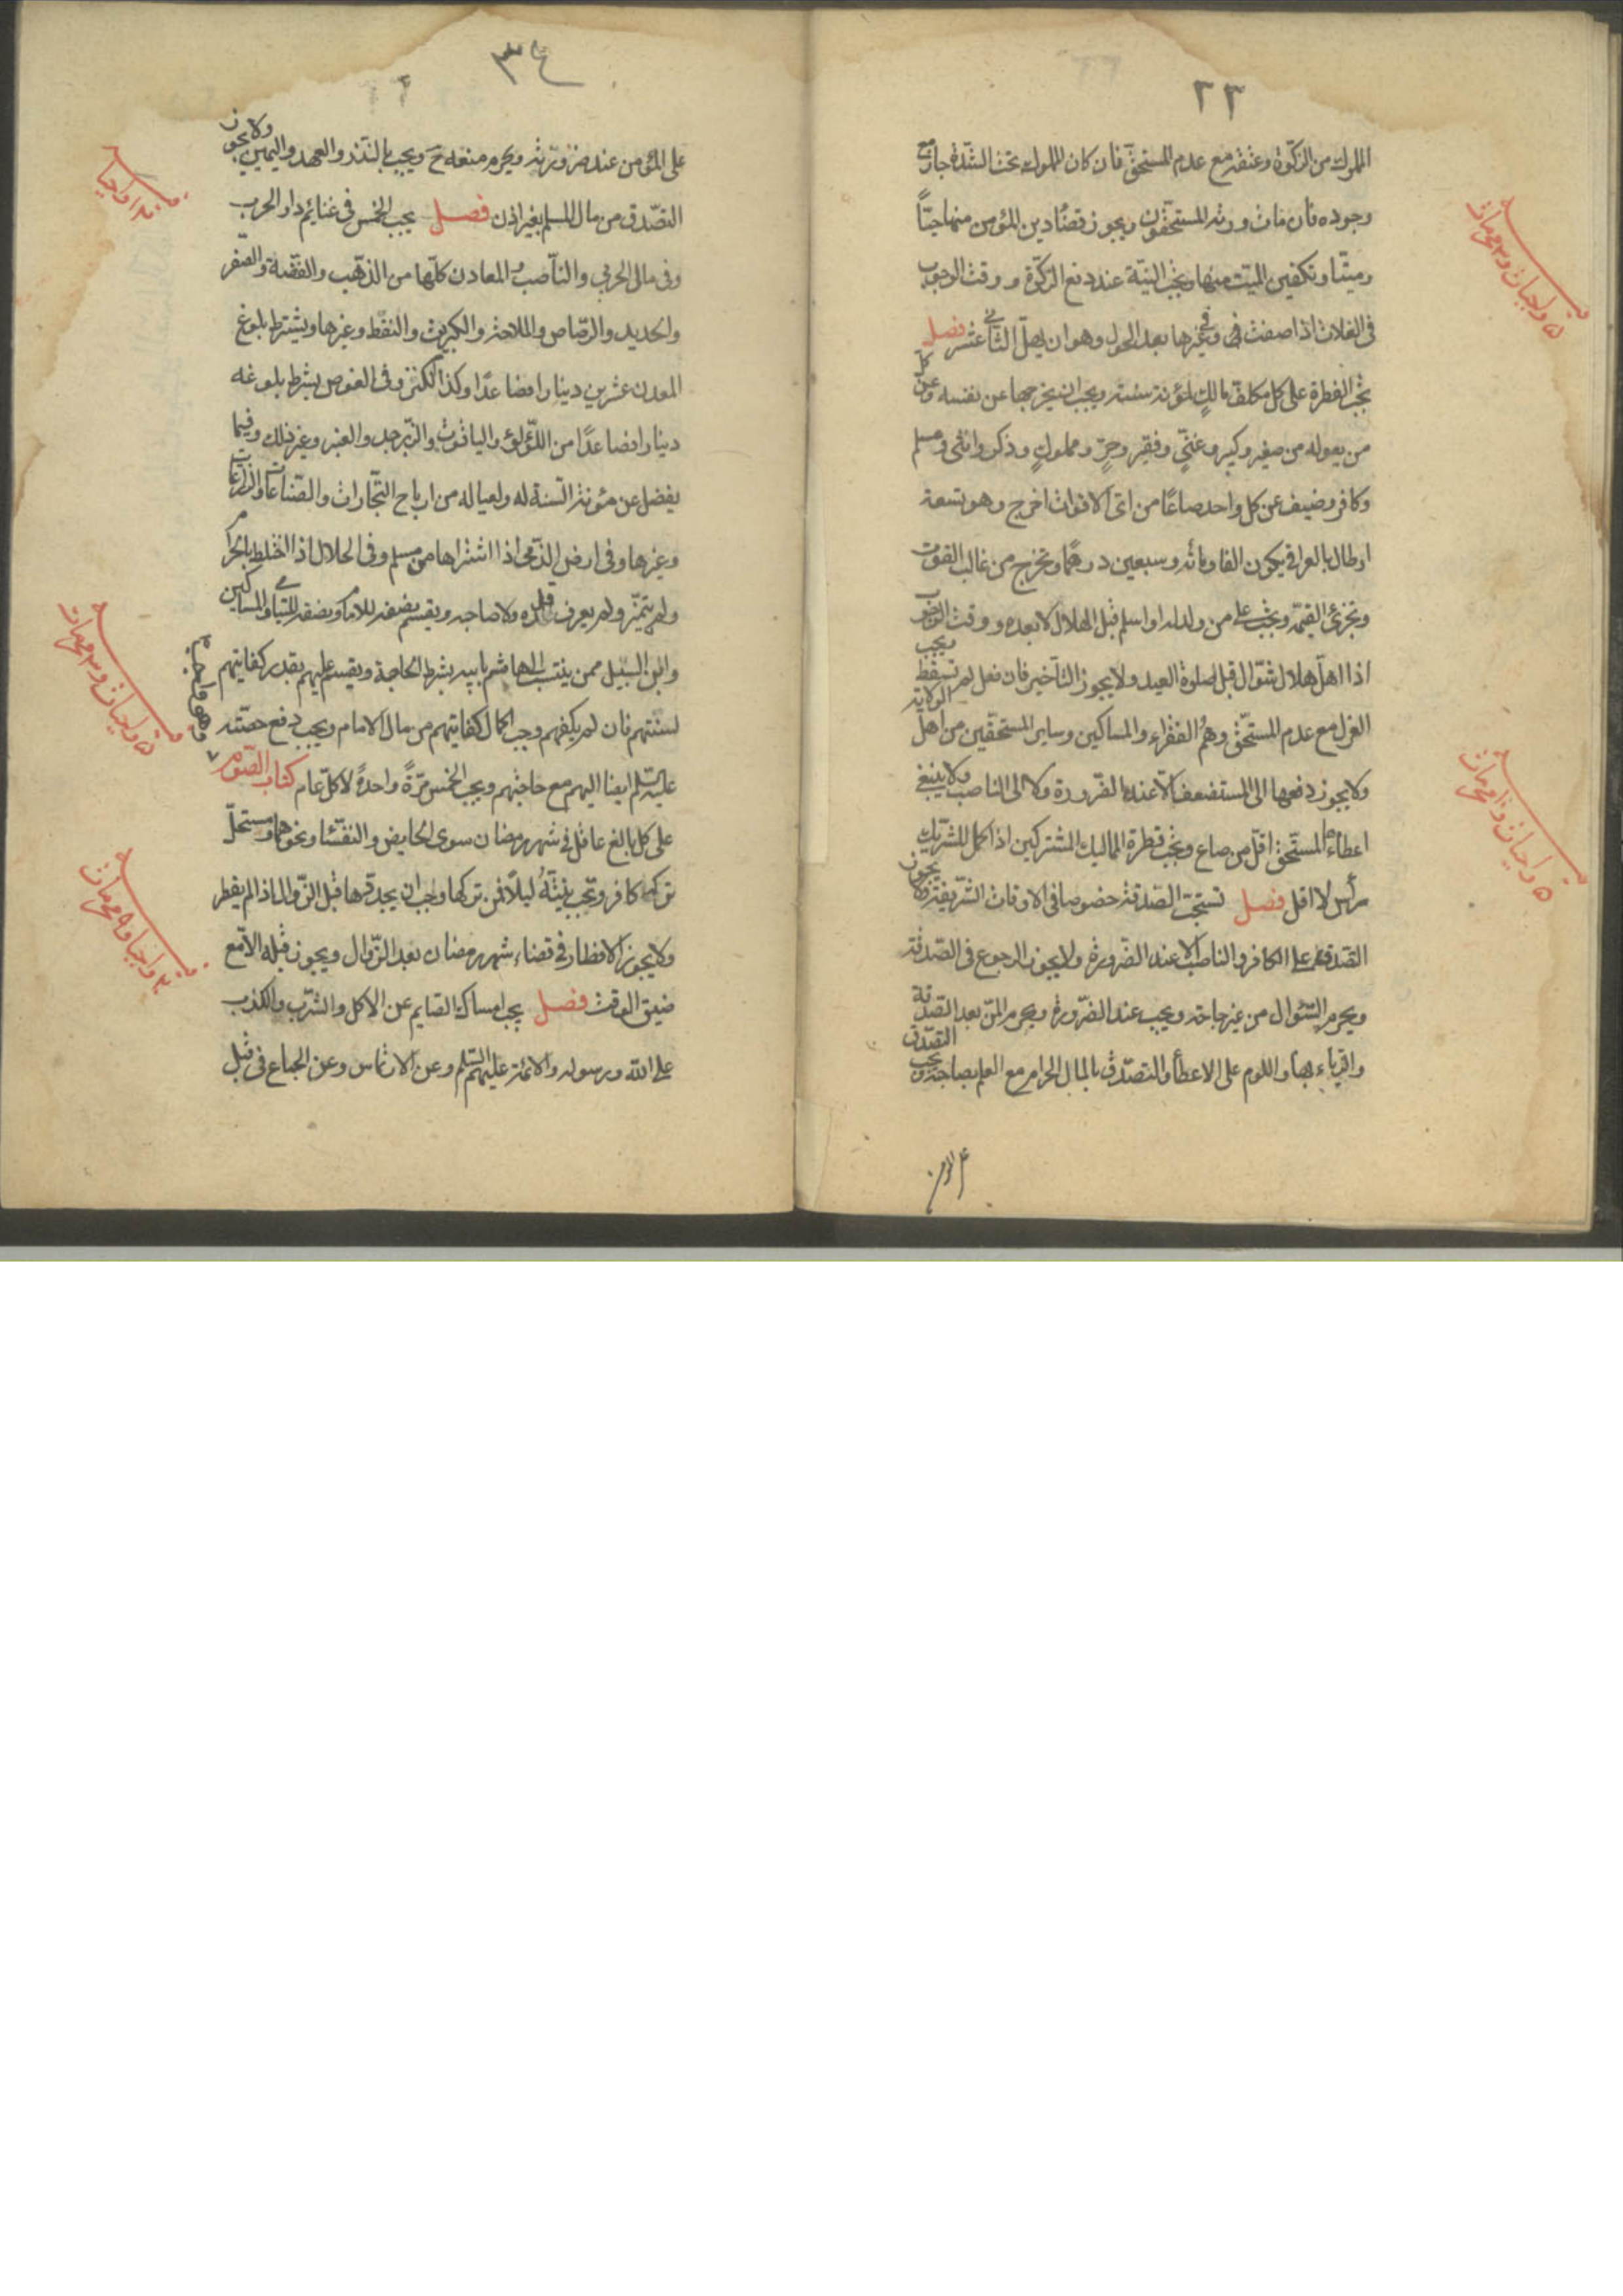 ٢٣
المملوك من الزكوة وعتقه مع عدم المستحق فان كان المملوك تحت الشدة جاز مع
وجوده فان مات ورثه المستحقون ويجوز قضاء دين المؤمن منها حيّاً
وميتا وتكفين الميت منها ويجب النية عند دفع الزكوة و وقت الوجوب
فى الغلات اذا صفت و فى غيرها بعد الحول وهو ان يهل الثانى عشر فصل
تجب الفطرة على كل مكلف مالكٍ لمؤنة سنته ويجب ان يخرجها عن نفسه وعن كل
من يعوله من صغير وكبير وغنىٍّ وفقير وحرٍّ ومملوكٍ وذكر وانثى ومسلم
وكافر وضيف عن كل واحد صاعًا من اى الاقوات اخرج وهو تسعة
ارطال بالعراقى يكون الفا ومأته وسبعين درهمًا ويخرج من غالب القوت
وتجزئ القيمة ويجب على من ولد له او اسلم قبل الهلال لا بعده و وقت الوجوب
اذا اهل هلال شوال قبل صلوة العيد ولا يجوز التأخير فان فعل لم تسقط يجب
العزل مع عدم المستحق وهُم الفقراء والمساكين وساير المستحقين من اهل الولاية
ولا يجوز دفعها الى المستضعف الا عند الضرورة ولا الى الناصب ولا ينبغى
اعطاء المستحق اقل من صاع وتجب فطرة المماليك المشتركين اذا كمل للشريك
رأس لا اقل فصل تستحب الصدقة خصوصا فى الاوقات الشريفة ولا يجوز
الصدقة على الكافر والناصب الا عند الضرورة ولا يجوز الرجوع فى الصدقة
ويحرم السؤال من غير حاجة ويجب عند الضرورة ويحرم المن بعد الصدقة
والرياء بها واللوم على الاعطاء والتصدق بالمال الحرام مع العلم بصاحبه ويجب التصدق
٣٤
على المؤمن عند ضرورته ويحرم منعه ح ويجب بالنذر والعهد واليمين ولا يجوز
التصدق من مال المسلم بغير اذن فصل يجب الخمس فى غنايم دار الحرب
وفى مال الحربي والناصب و المعادن كلها من الذهب والفضة والصفر
والحديد والرصاص والملاحة والكبريت والنفط وغيرها ويشترط بلوغ
المعدن عشرين دينارا فصاعدًا وكذا الكنز وفى الغوص بشرط بلوغه
دينارا فصاعدًا من اللؤلؤ والياقوت والزبرجد والعنبر وغير ذلك وفيما
يفضل عن مؤنة السنة له ولعياله من ارباح التجارات والصناعات والزراعات
وغيرها وفى ارض الذمى اذا اشتراها من مسلم وفى الحلال اذا اختلط بالحرام
ولم يتميز ولم يعرف قدره ولا صاحبه ويقسم نصفه للامام ونصفه لليتامى والمساكين
وابن السبيل ممن ينتسب الى هاشم بابيه بشرط الحاجة ويقسم عليهم بقدر كفايتهم
لسنتهم فان لم يكفهم وجب اكمال كفايتهم من مال الامام ويجب دفع حصته
عليه السلم ايضا اليهم مع حاجتهم ويجب الخمس مرّةً واحدةً لا كل عام كتاب الصوم
على كل بالغ عاقل فى شهر رمضان سوى الحايض والنفساء ونحوهما ومستحلّ
تركه كافر وتجب نيّتهُ ليلاً فمن تركها وجب ان يجددها قبل الزوال اذا لم يفطر
ولا يجوز الافطار فى قضاء شهر رمضان بعد الزوال ويجوز قبله الا مع
ضيق الوقت فصل يجب امساك الصايم عن الاكل والشرب والكذب
على الله ورسوله والائمة عليهم السلم وعن الارتماس وعن الجماع فى قبل